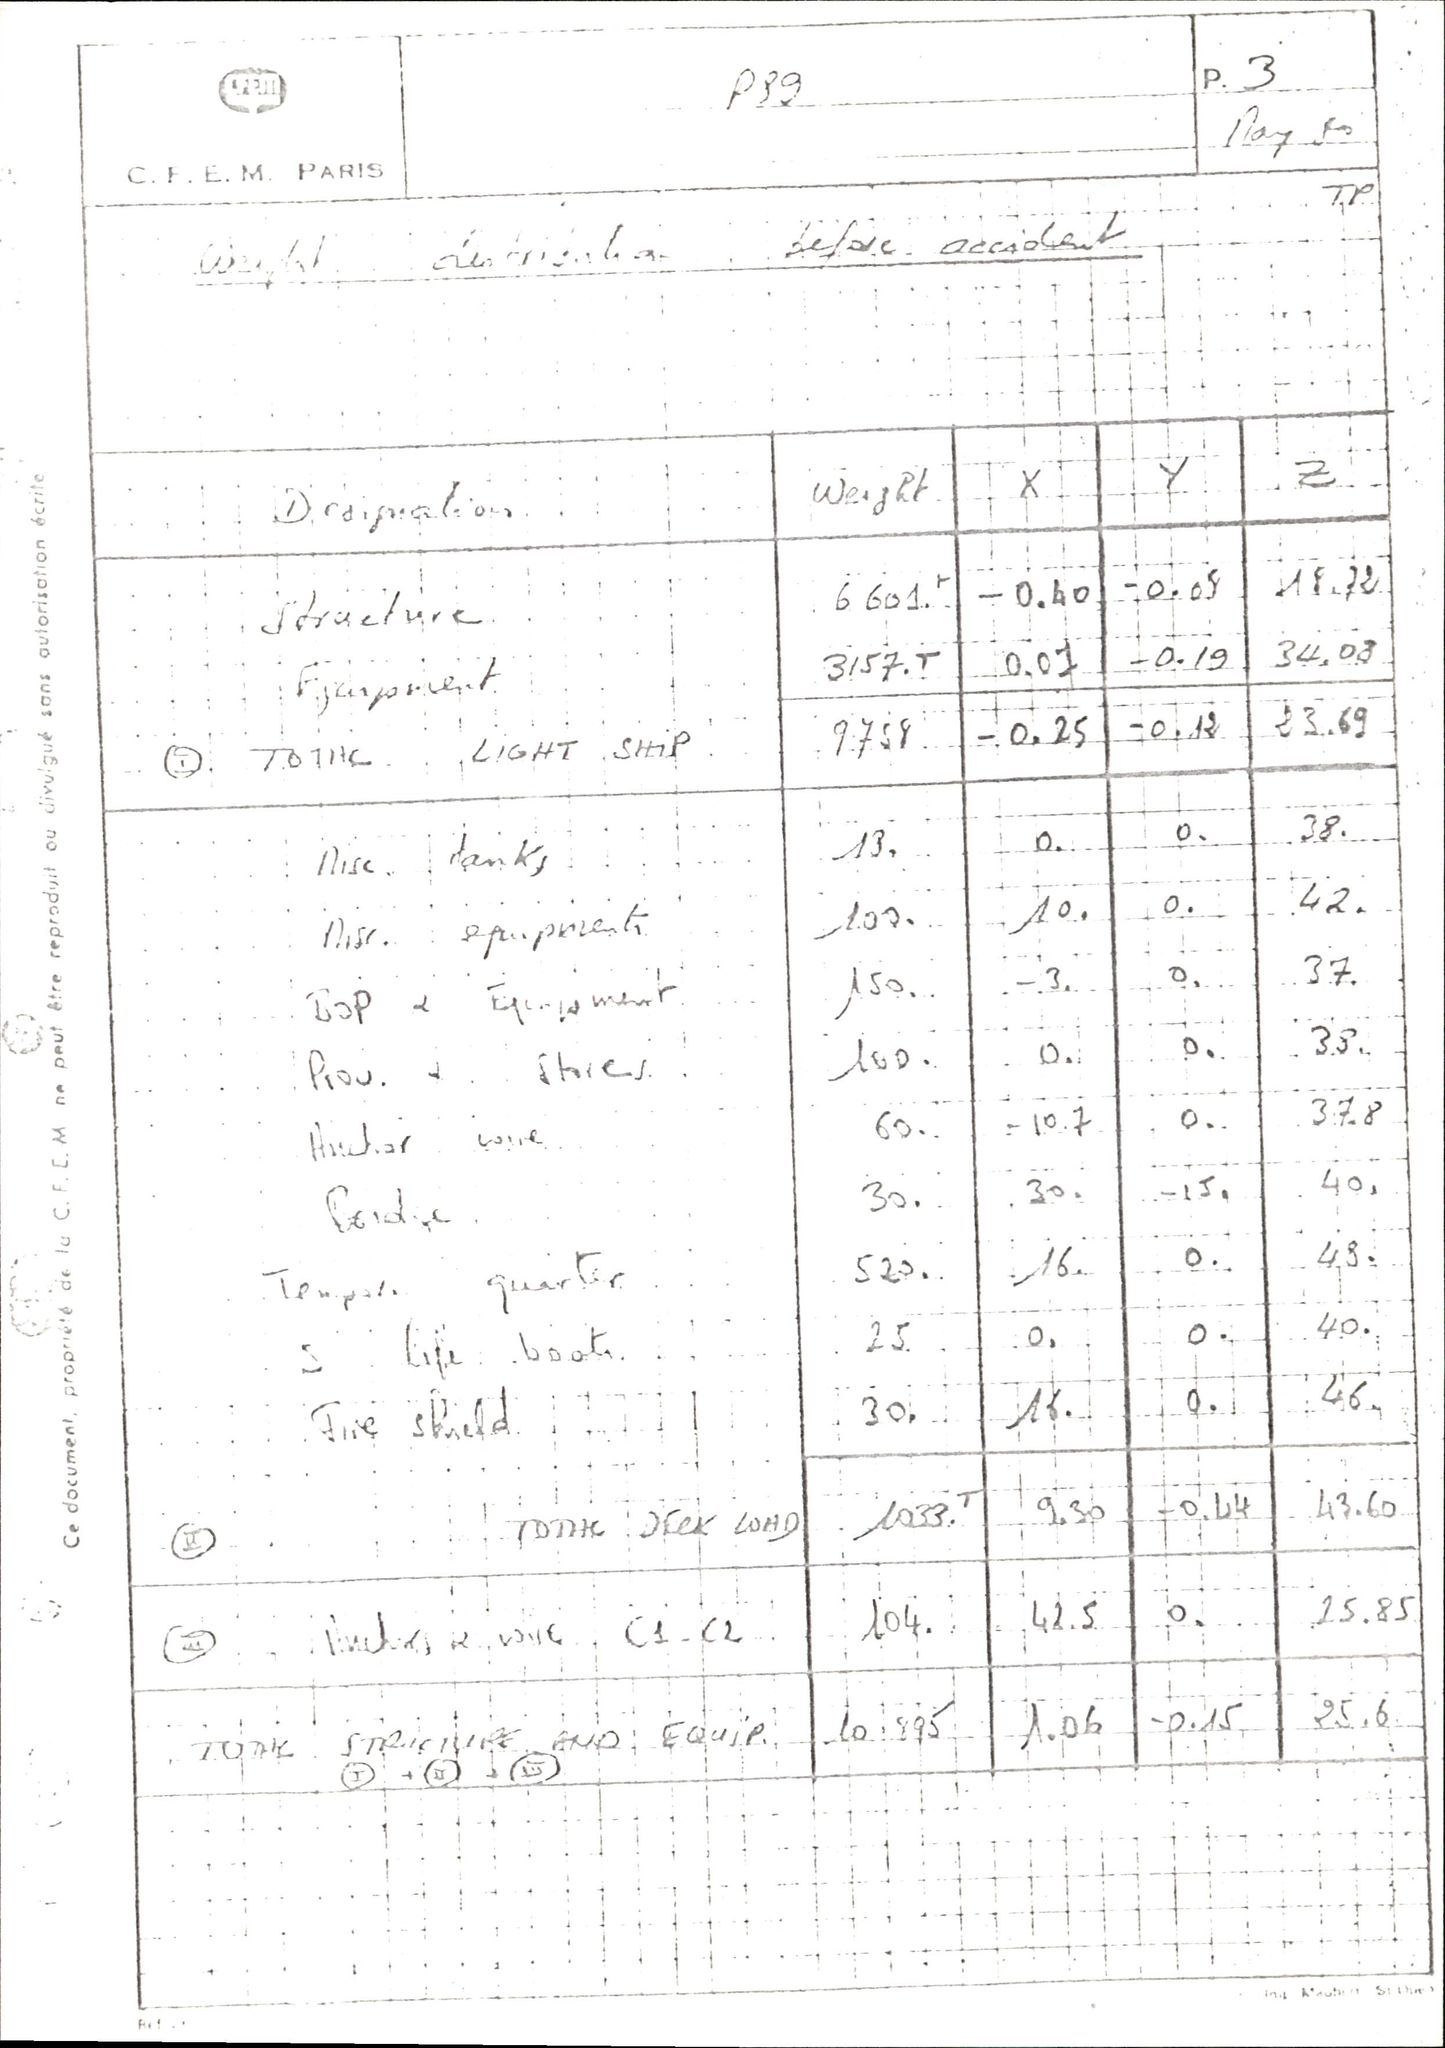 CFEM
C. F. E. M. PARIS
P89
P. 3
May 80
TP
Weight distribution before accident
Designation Weight X Y Z
Structure 6 601.T -0.40 -0.08 18.72
Equipment 3157.T 0.07 -0.19 34.08
I TOTAL LIGHT SHIP 9758 -0.25 -0.12 23.69
Misc. tanks 18. 0. 0. 38.
Misc. equipments 100. 10. 0. 42.
BOP & Equipment 150. -3. 0. 37.
Prov. & Stores 100. 0. 0. 38.
Anchor wire 60. -10.7 0. 37.8
Bridge 30. 30. -15. 40.
Tempor. quarter 520. 16. 0. 48.
5 Life boats 25 0. 0. 40.
Fire shield 30. 16. 0. 46.
II TOTAL DECK LOAD 1033.T 9.30 -0.44 43.60
III Anchors & wire C1-C2 104. 42.5 0. 25.85
TOTAL STRUCTURE AND EQUIP. 10 895 1.06 -0.15 25.6
I + II + III
Ce document, propriété de la C.F.E.M ne peut être reproduit ou divulgué sans autorisation écrite
Ref
Imp. St Ouen